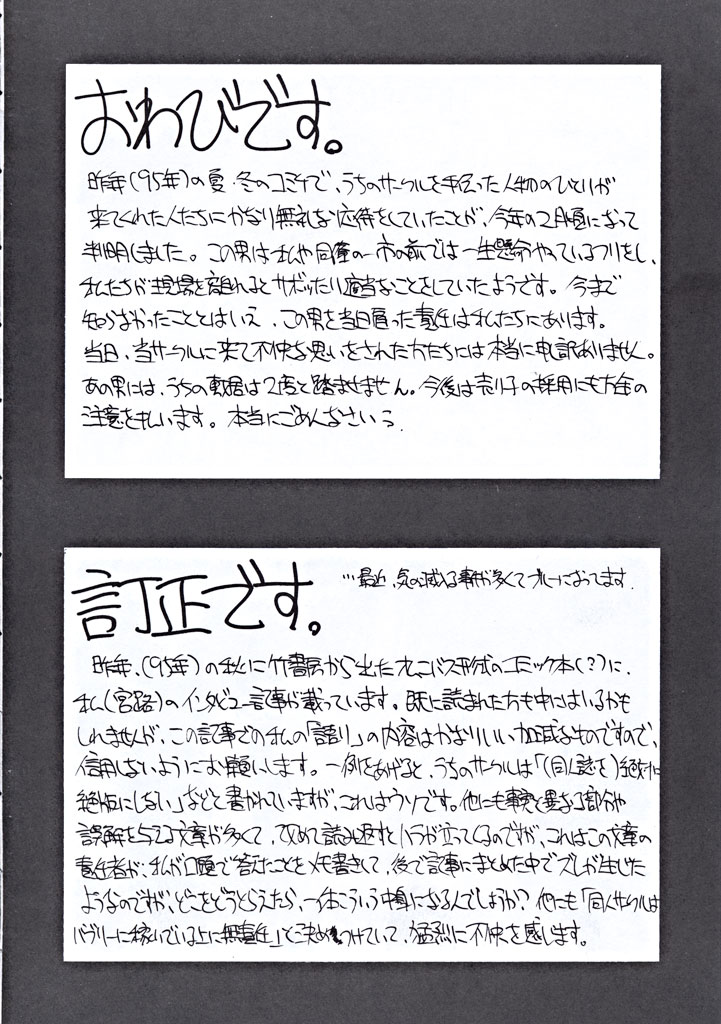 おわびです。
昨年(95年)の夏・冬のコミケで、うちのサークルを手伝った人物のひとりが
来てくれた人たちにかなり無礼な応待をしていたことが、今年の2月頃になって
判明しました。この男は私や同僚の一市の前では一生懸命やっているフリをし、
私たちが現場を離れるとサボったり適当なことをしていたようです。今まで
知らなかったこととはいえ、この男を当日雇った責任は私たちにあります。
当日、当サークルに来て不快な思いをされた方たちには本当に申し訳ありません。
あの男には、うちの敷居は2度と踏ませません。今後は売り子の採用にも万全の
注意を払います。本当にごめんなさい
訂正です。
…最近、気の滅入る事が多くてブルーになってます.
昨年、(95年)の秋に竹書房から出たオムニバス形式のコミック本(?)に、
私(宮路)のインタビュー記事が載っています。既に読まれた方も中にはいるかも
しれませんが、この記事での私の「語り」の内容はかなりいい加減なものですので、
信用しないようにお願いします。一例をあげると、うちのサークルは「(同人誌を)絶対に
絶版にしない」などと書かれていますが、これはウソです。他にも事実と異なる部分や
誤解を与える文章が多くて、改めて読み返すとハラが立ってくるのですが、これはこの文章の
責任者が、私が口頭で答えたことをメモ書きして、後で記事にまとめた中でズレが生じた
ようなのですが、どこをどうとらえたら、一体こういう中身になるんでしょうか? 他にも「同人サークルは
バブリーに稼いでいる上に無責任」と決めつけていて、猛烈に不快を感じます。